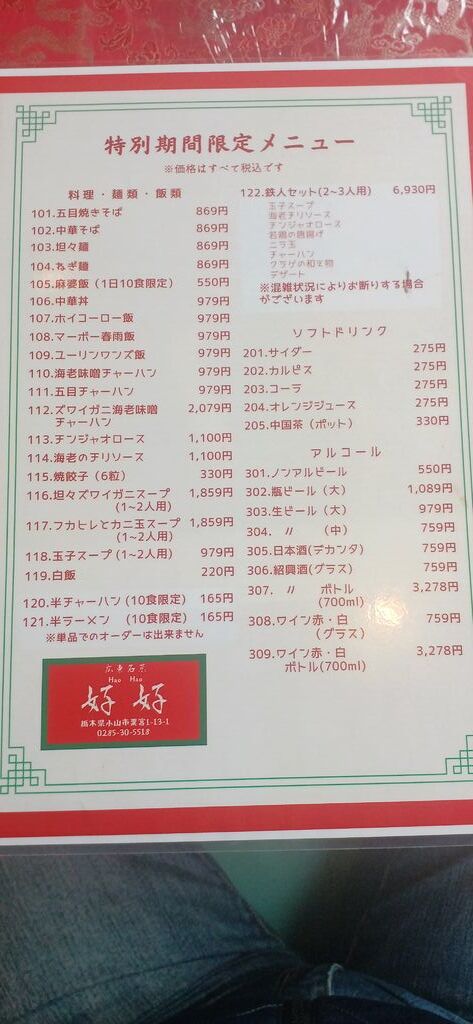 特別期間限定メニュー
※価格はすべて税込です
料理・麺類・飯類
101.五目焼きそば 869円
102.中華そば 869円
103.坦々麺 869円
104.ねぎ麺 869円
105.麻婆飯（1日10食限定） 550円
106.中華丼 979円
107.ホイコーロー飯 979円
108.マーボー春雨飯 979円
109.ユーリンワンズ飯 979円
110.海老味噌チャーハン 979円
111.五目チャーハン 979円
112.ズワイガニ海老味噌 2,079円
チャーハン
113.チンジャオロース 1,100円
114.海老のチリソース 1,100円
115.焼餃子（6粒） 330円
116.坦々ズワイガニスープ 1,859円
(1~2人用)
117.フカヒレとカニ玉スープ 1,859円
(1~2人用)
118.玉子スープ(1~2人用) 979円
119.白飯 220円
120.半チャーハン(10食限定) 165円
121.半ラーメン (10食限定) 165円
※単品でのオーダーは出来ません
122.鉄人セット(2~3人用) 6,930円
玉子スープ
海老チリソース
チンジャオロース
若鶏の唐揚げ
ニラ玉
チャーハン
クラゲの和え物
デザート
※混雑状況によりお断りする場合
がございます
ソフトドリンク
201.サイダー 275円
202.カルピス 275円
203.コーラ 275円
204.オレンジジュース 275円
205.中国茶（ポット） 330円
アルコール
301.ノンアルビール 550円
302.瓶ビール（大） 1,089円
303.生ビール（大） 979円
304. 〃 （中） 759円
305.日本酒(デカンタ) 759円
306.紹興酒(グラス) 759円
307. 〃 ボトル 3,278円
(700ml)
308.ワイン赤・白 759円
（グラス）
309.ワイン赤・白 3,278円
ボトル(700ml)
広東名菜
Hao Hao
好 好
栃木県小山市東城1-13-1
0285-30-5518